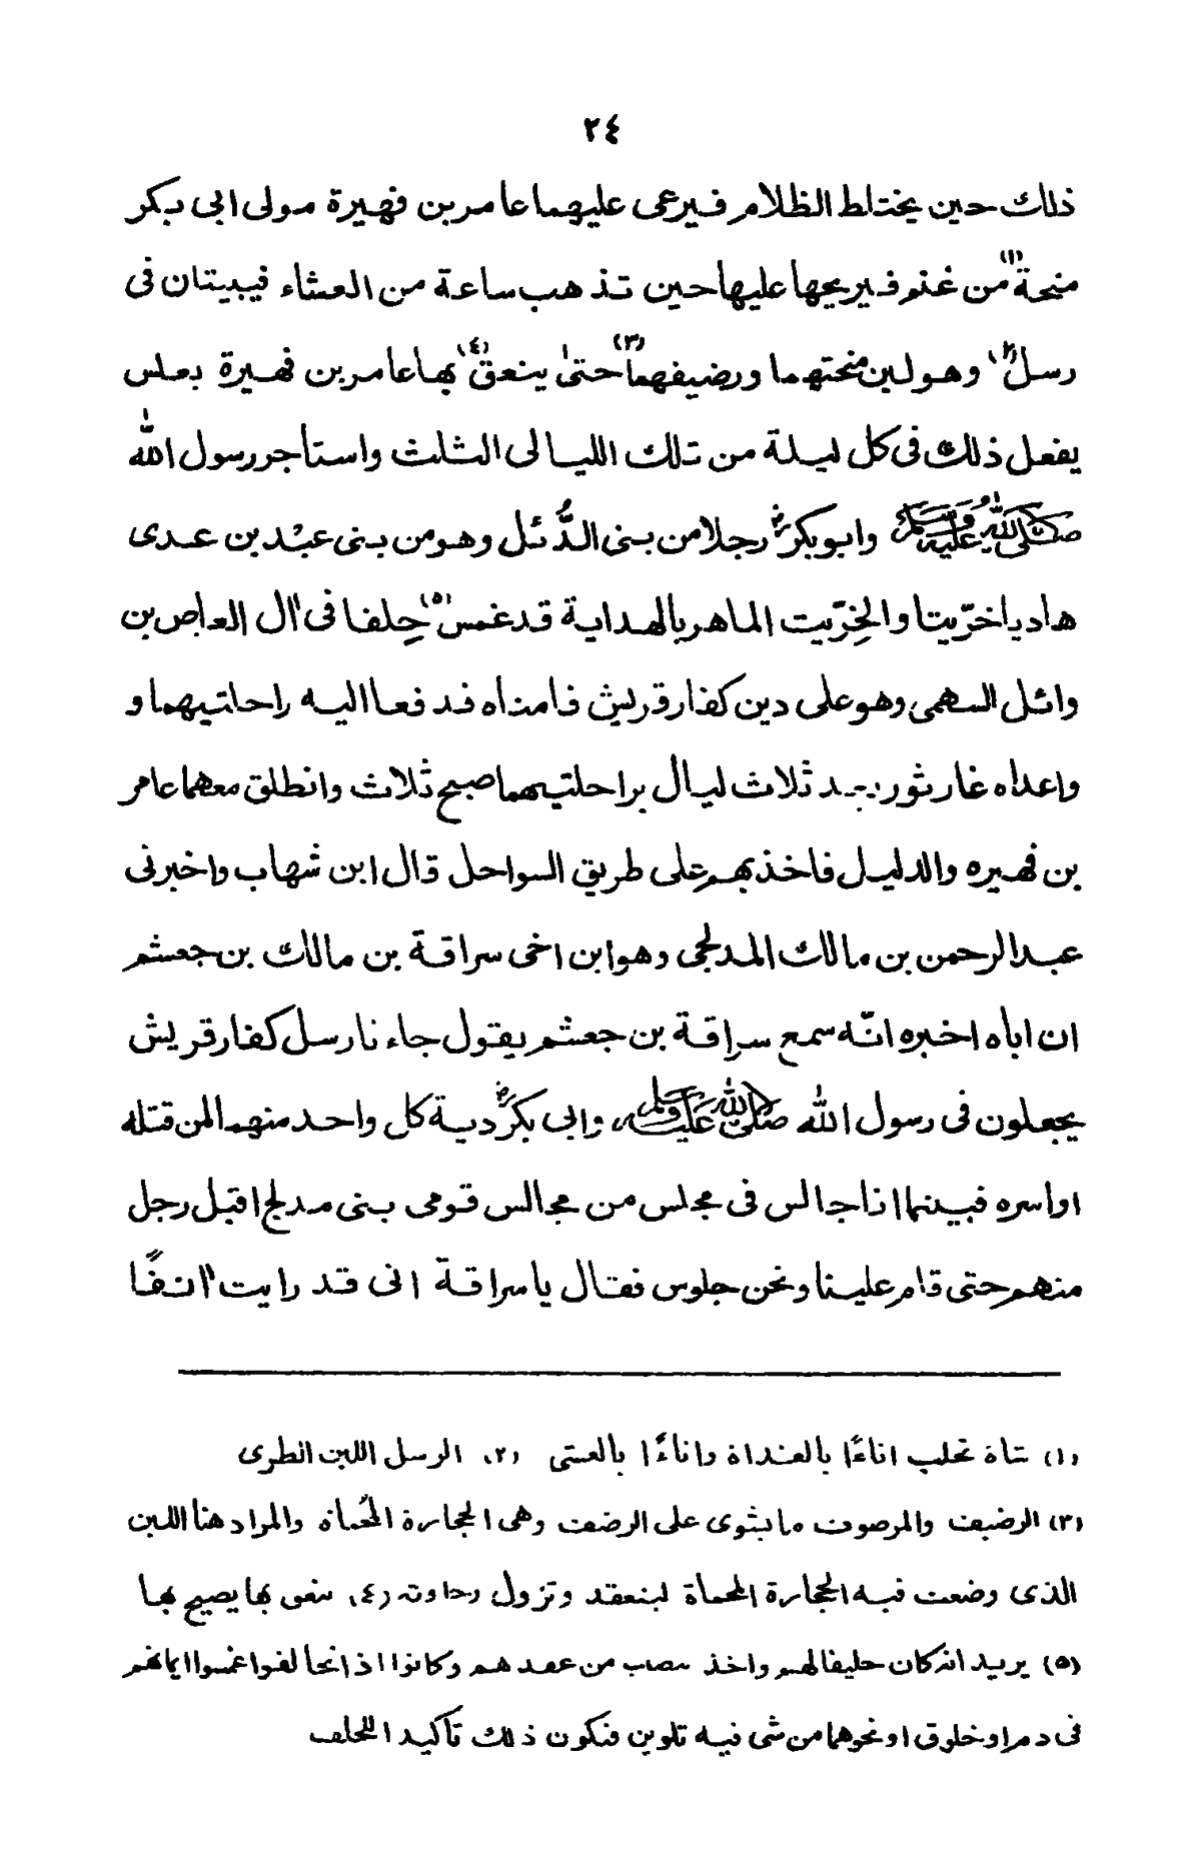 ٢٤
ذلك حين يختلط الظلام فيرعى عليهما عامر بن فهيرة مولى ابى بكر
منحة(١) من غنم فيريحها عليها حين تذهب ساعة من العشاء فيبيتان فى
رسل(٢) وهو لبن منحتهما ورضيفهما(٣) حتىٰ ينعق(٤) بها عامر بن فهيرة بغلس
يفعل ذلك فى كل ليلة من تلك الليالى الثلث واستاجر رسول الله
صلى الله عليه وسلم وابوبكرؓ رجلا من بنى الدُّئل وهو من بنى عبْد بن عدى
هاديا خرّيتا والخِرّيت الماهر بالهداية قد غمس(٥) حِلفا فى اٰل العاص بن
وائل السهمى وهو على دين كفار قريش فامناه فدفعا اليه راحلتيهما و
واعداه غار ثور بعد ثلاث ليال براحلتيهما صبح ثلاث وانطلق معهما عامر
بن فهيره والدليل فاخذ بهم على طريق السواحل قال ابن شهاب واخبرنى
عبد الرحمن بن مالك المدلجى وهو ابن اخى سراقة بن مالك بن جعشم
ان اباه اخبره انّه سمع سراقة بن جعشم يقول جاءنا رسل كفار قريش
يجعلون فى رسول الله صلى الله عليه وسلم وابى بكرؓ دية كل واحد منهما لمن قتله
او اسره فبينما انا جالس فى مجلس من مجالس قومى بنى مدلج اقبل رجل
منهم حتى قام علينا ونحن جلوس فقال يا سراقة انى قد رايت اٰنفًا
(١) شاة تحلب اناءًا بالغداة واناءًا بالعشى (٢) الرسل اللبن الطرى
(٣) الرضيف والمرضوف ما يشوى على الرضف وهى الحجارة المُحماة والمراد هنا اللبن
الذى وضعت فيه الحجارة المحماة لينعقد وتزول رخاوته (٤) ينعق بها يصيح بها
(٥) يريد انه كان حليفا لهم واخذ بنصيب من عقدهم وكانوا اذا تحالفوا غمسوا ايمانهم
فى دم او خلوق او نحوهما من شى فيه تلوين فتكون ذلك تاكيدا للحلف